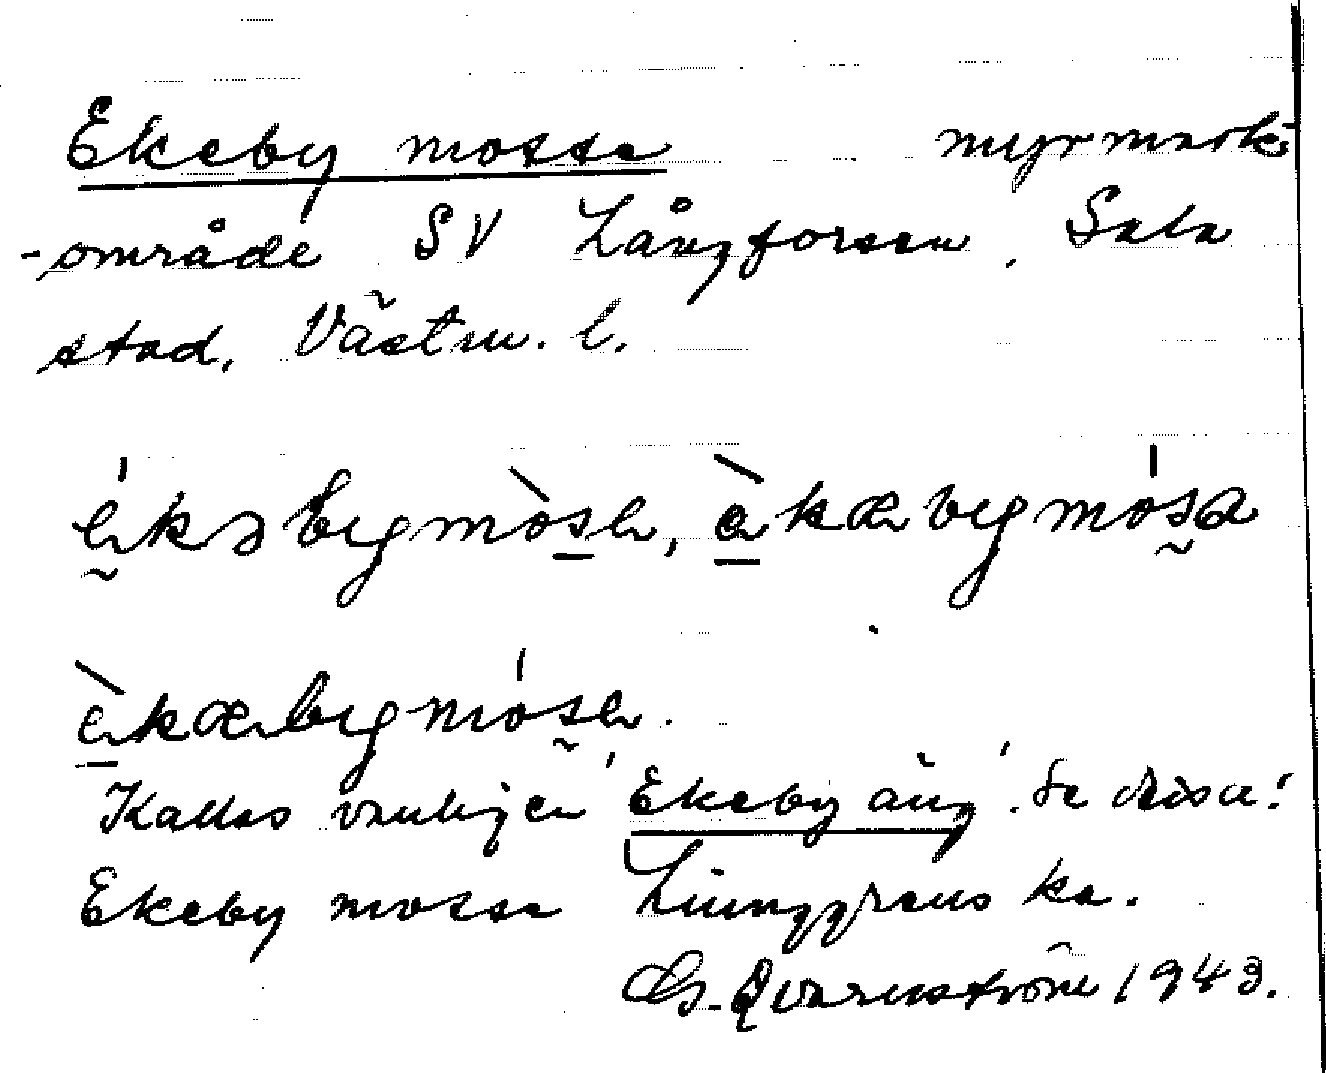 Ekeby mosse myrmark
-område SV Långforsen, Sala
stad, Västm. l.
èkəbygmòsa, èkæbygmósa
èkæbygmósa.
Kallas vanligen 'Ekeby äng'. Se dessa!
Ekeby mosse Ljunggrens ka.
G. Qvarnström 1943.